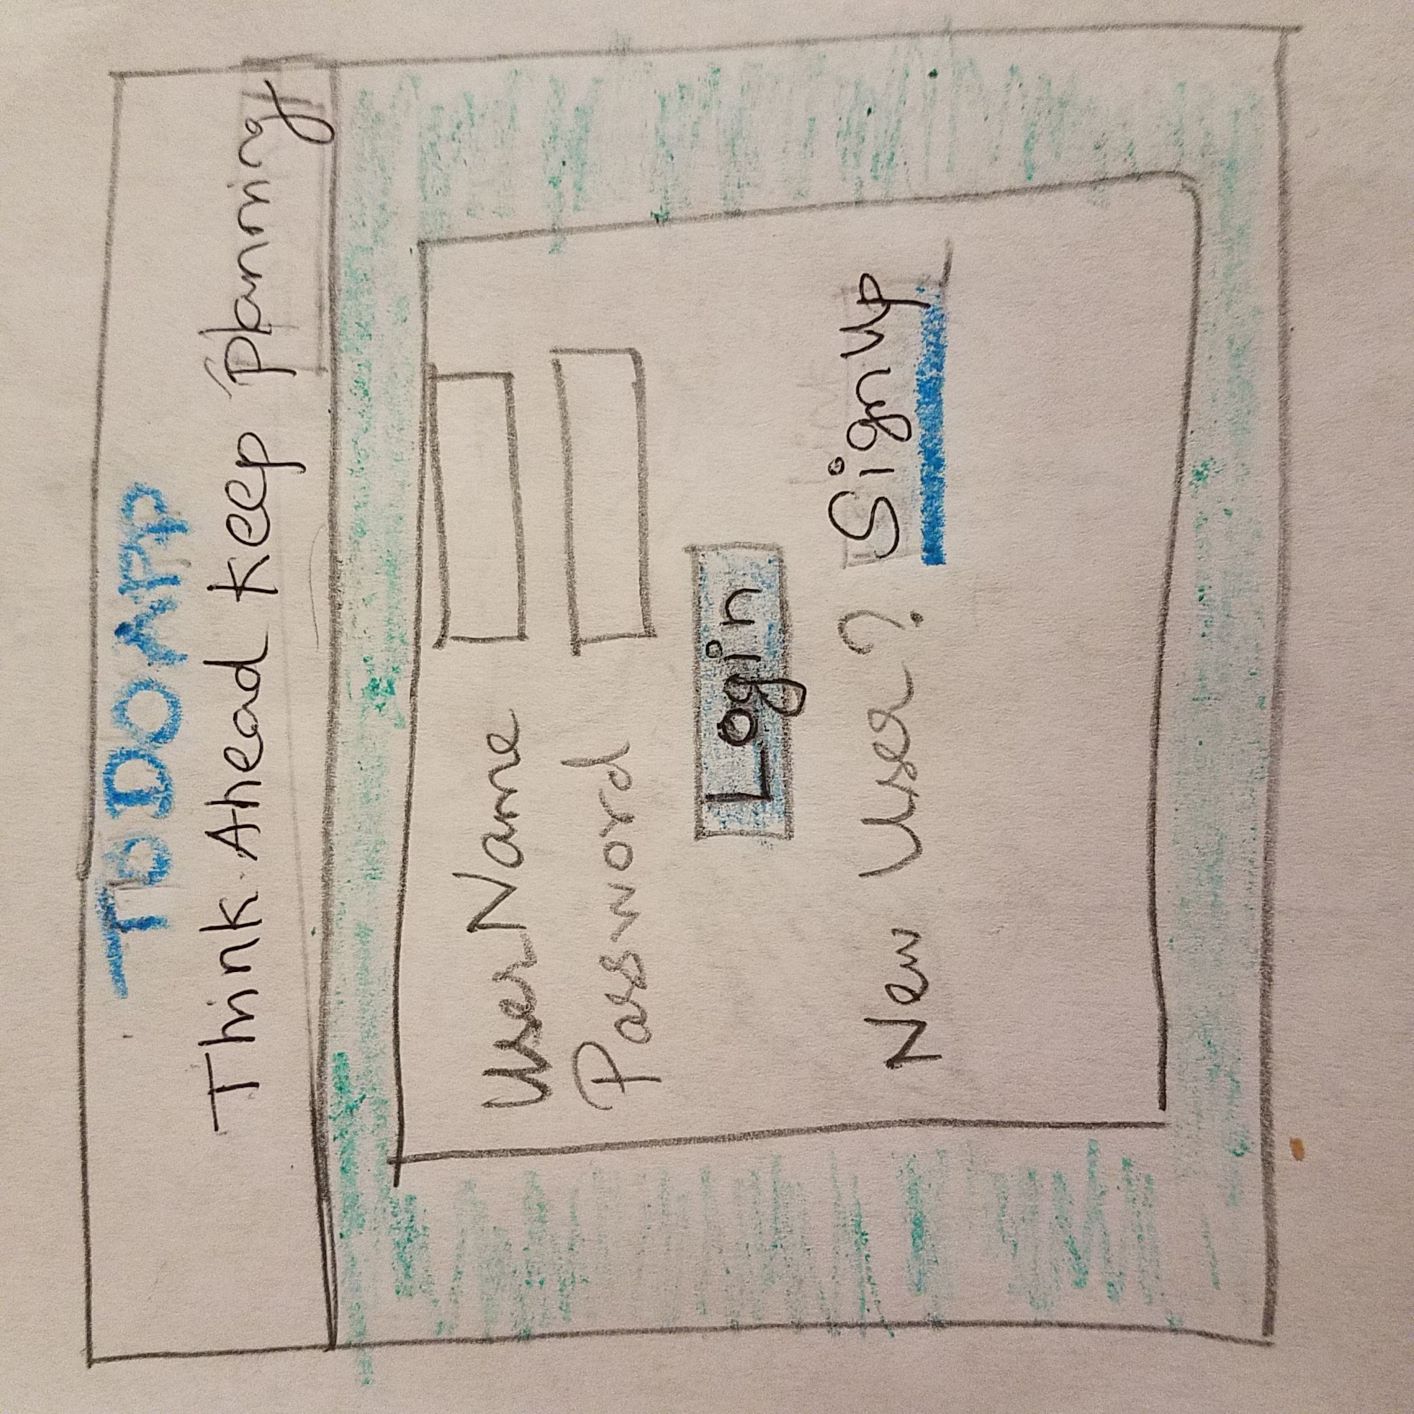 TODO APP
Think Ahead Keep planning
UserName
Password
Login
New User? SignUp